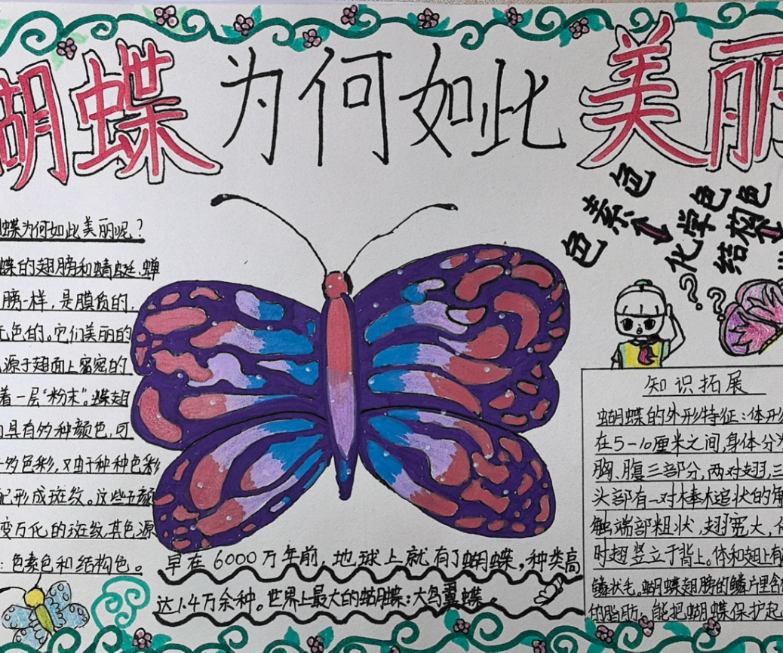 胡蝶为何如此美丽
蝶为何如此美丽呢？
蝶的翅膀和蜻蜓、蝉
膀一样，是膜质的，
无色的。它们美丽的
源于翅面上密密的
着一层“粉末”。蝶翅
具有的种颜色，可
的色彩，又由于种种色彩
配形成斑纹。这些千
变万化的斑纹其色源
：色素色和结构色。
色素色
化学色
结构色
早在6000万年前，地球上就有了蝴蝶。种类高
达1.4万余种。世界上最大的蝴蝶：大鸟翼蝶。
知识拓展
蝴蝶的外形特征：体形
在5-10厘米之间，身体分
胸、腹三部分，两对翅，三
头部有一对棒槌状的
触端部粗状，翅宽大，
时翅竖立于背上。体和翅上
鳞状毛。蝴蝶翅膀的鳞片里含
的脂肪，能把蝴蝶保护起